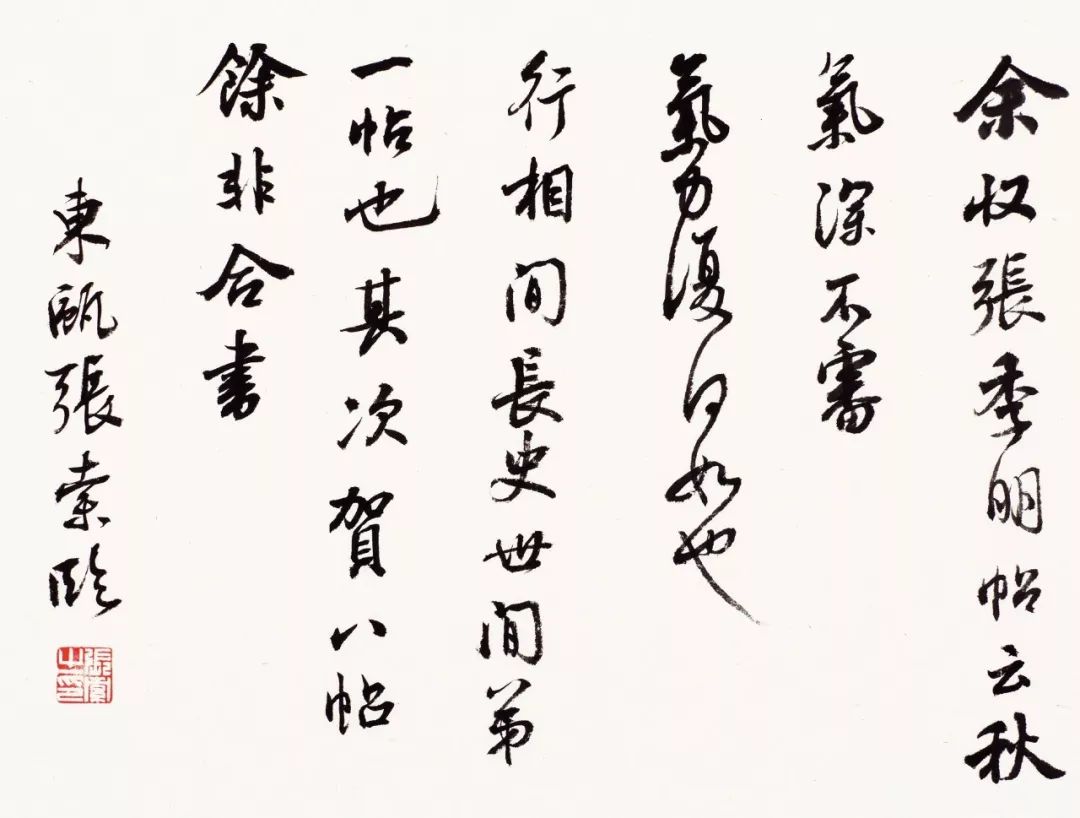 余収張季明帖云秋
氣深不審
氣力復何如也
行相間長史世間第
一帖也其次賀八帖
餘非合書
東甌張索臨
張索之印